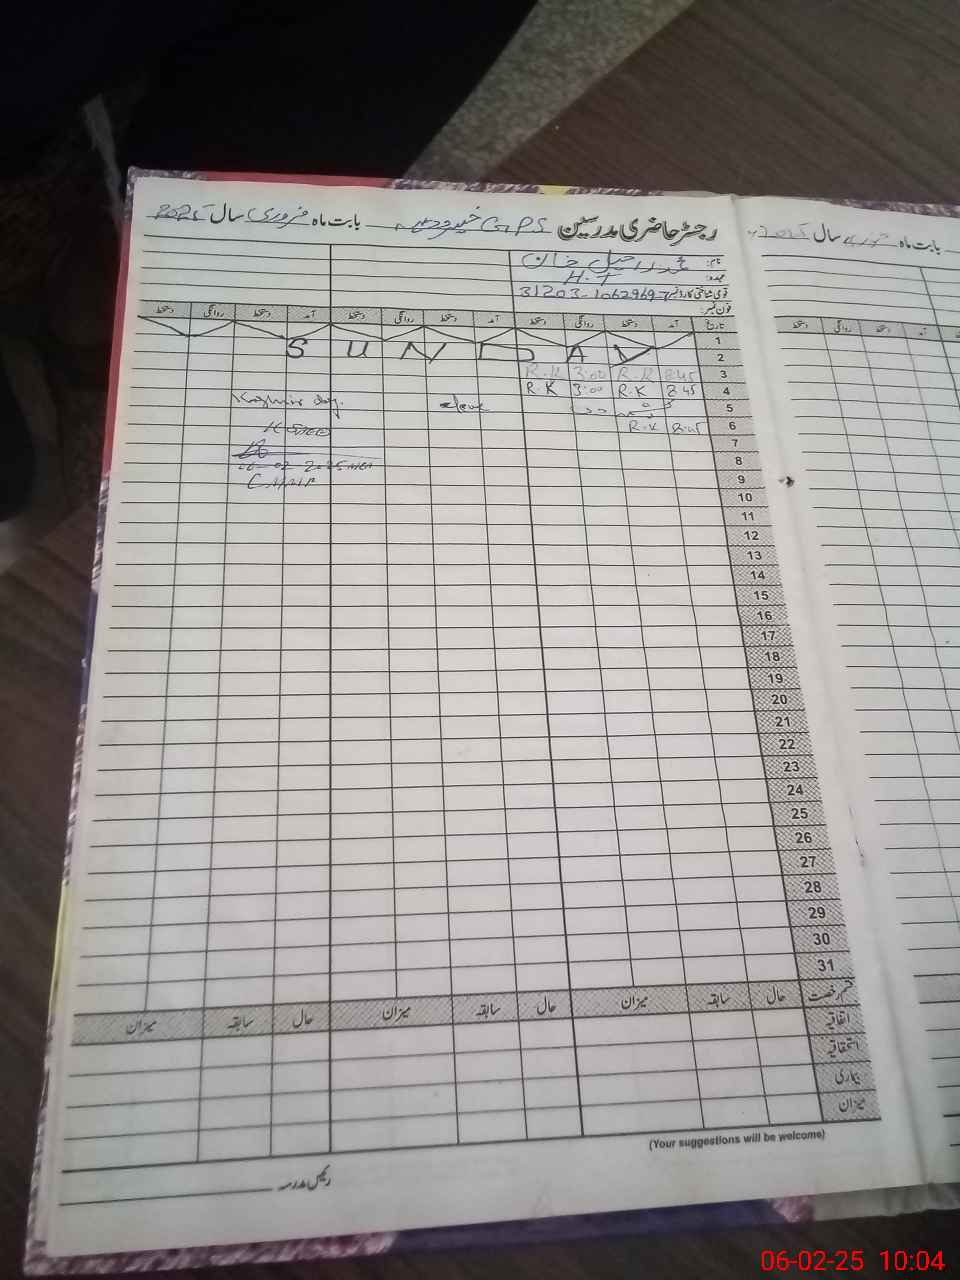 رجسٹر حاضری مدرسین G.P.S بابت ماہ فروری سال 2025
بابت ماہ سال
نام: خان
عہدہ: H.T
قومی شناختی کارڈ نمبر 31203-1062969-7
فون نمبر:
تاریخ آمد دستخط روانگی دستخط آمد دستخط روانگی دستخط آمد دستخط روانگی دستخط
دستخط روانگی دستخط آمد
1
2 SUNDAY
3 8:45 R.K 3:00 R.K
4 8:45 R.K 3:00 R.K
5 Kashmir day.
6 8:45 R.K
7
8 06-02-2025
9
10
11
12
13
14
15
16
17
18
19
20
21
22
23
24
25
26
27
28
29
30
31
قسم رخصت حال سابقہ میزان حال سابقہ میزان حال سابقہ میزان
اتفاقیہ
استحقاقیہ
بیماری
میزان
(Your suggestions will be welcome)
رئیس مدرسہ
06-02-25 10:04